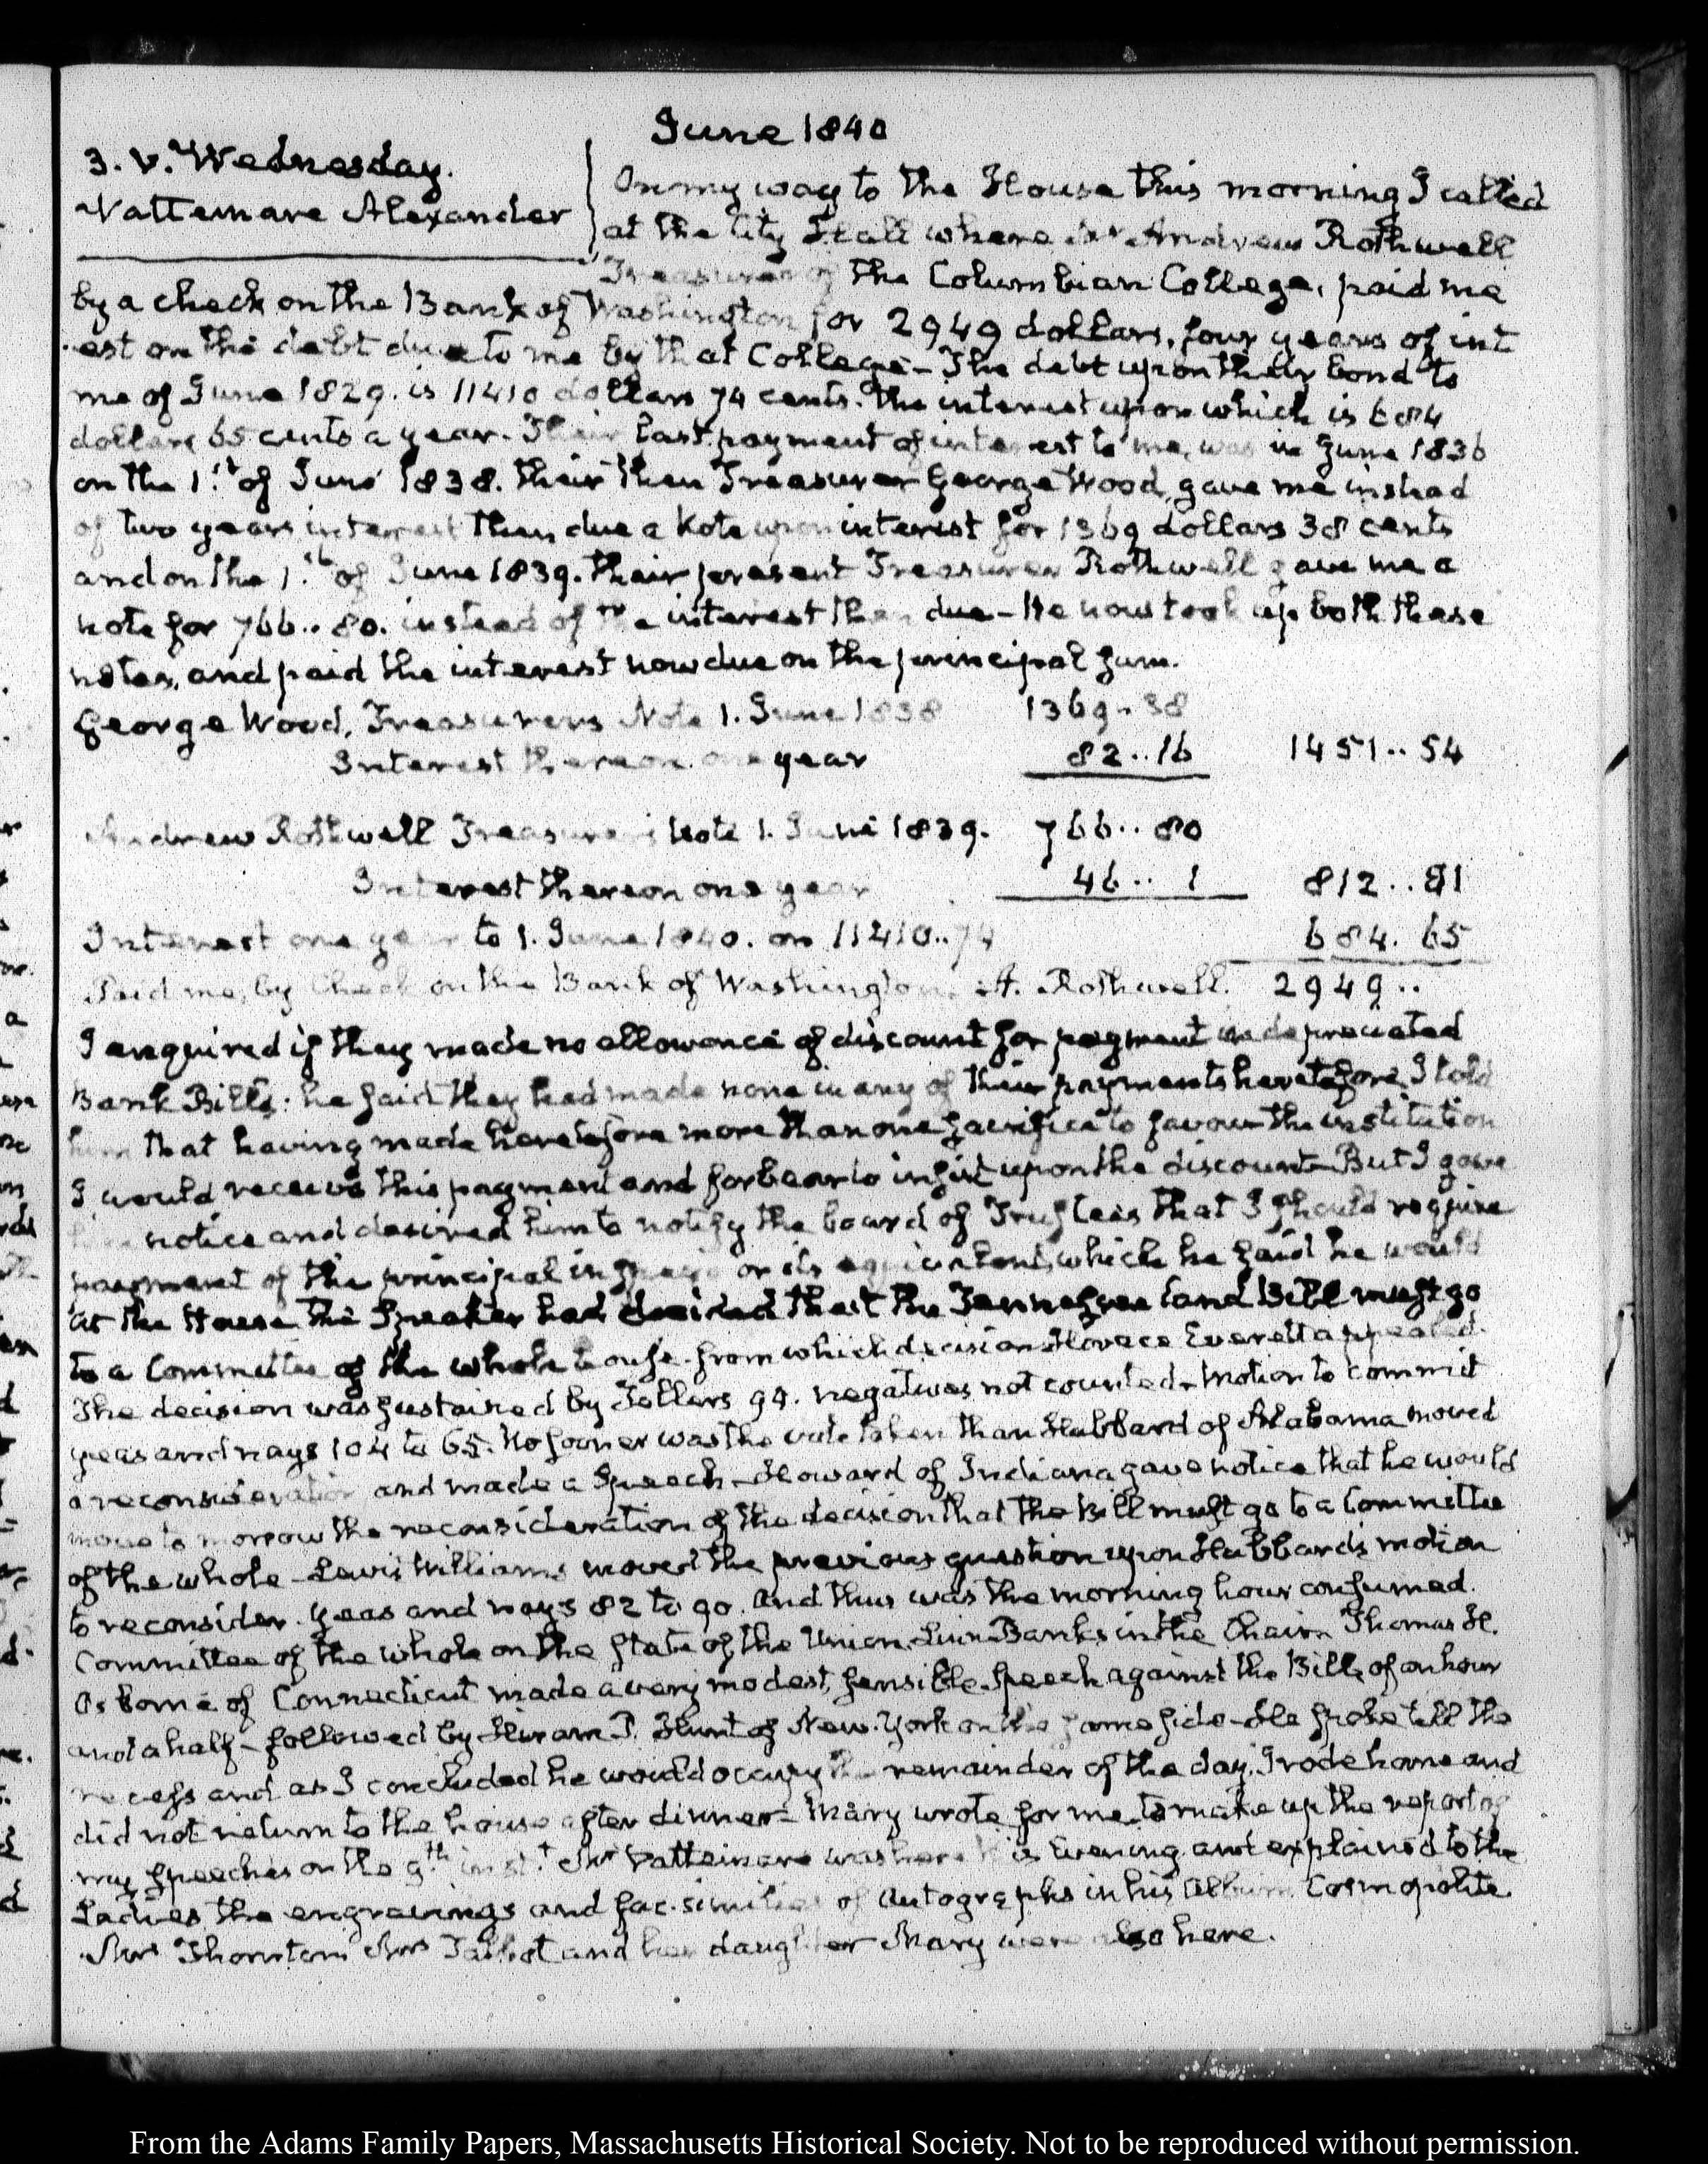 June 1840
3. V. Wednesday.
Vattemare Alexander
On my way to the House this morning I called
at the City Hall where Mr Andrew Rothwell
Treasurer of the Columbian College, paid me
by a check on the Bank of Washington for 2949 dollars, four years of int
est on the debt due to me by that College – The debt upon their bond to
me of June 1829. is 11410 dollars 74 cents. the interest upon which is 684
dollars 65 cents a year. Their last payment of interest to me, was in June 1836
on the 1.st of June 1838. their then Treasurer George Wood, gave me instead
of two years interest then due a Note upon interest for 1369 dollars 38 cents
and on the 1.st of June 1839. their present Treasurer Rothwell gave me a
note for 766.. 80. instead of the interest then due – He now took up both these
notes, and paid the interest now due on the principal sum.
George Wood, Treasurers Note 1. June 1838 1369.. 38
Interest thereon one year 82..16 1451.. 54
Andrew Rothwell Treasurers Note 1. June 1839. 766.. 80
Interest thereon one year 46.. 1 812.. 81
Interest one year to 1. June 1840. on 11410..74 684. 65
Paid me, by Check on the Bank of Washington. A. Rothwell. 2949..
I enquired if they made no allowance of discount for payment in depreciated
Bank Bills: he said they had made none in any of their payments heretofore, I told
him that having made heretofore more than one sacrifice to favour the institution
I would receive this payment and forbear to insist upon the discount – But I gave
him notice and desired him to notify the board of Trustees that I should require
payment of the principal in specie or its equivalent, which he said he would
At the House the Speaker had decided that the Tennessee land Bill must go
to a Committee of the whole house. from which decision Horace Everett appealed.
The decision was sustained by Tellers 94. negatives not counted – Motion to commit
yeas and nays 104 to 65. No sooner was the vote taken than Hubbard of Alabama moved
a reconsideration and made a Speech – Howard of Indiana gave notice that he would
move to morrow the reconsideration of the decision that the Bill must go to a Committee
of the whole – Lewis Williams moved the previous question upon Hubbard's motion
to reconsider. yeas and nays 82 to 90. and thus was the morning hour consumed.
Committee of the whole on the State of the Union. Linn Banks in the Chair. Thomas H.
Osborne of Connecticut made a very modest, sensible speech against the Bill, of an hour
and a half – followed by Hiram P. Hunt of New-York on the same side – He spoke till the
recess and as I concluded he would occupy the remainder of the day, I rode home and
did not return to the house after dinner – Mary wrote for me to make up the report of
my speeches on the 9th inst.t Mr Vattemare was here this Evening and explained to the
Ladies the engravings and fac-similies of Autographs in his Album Cosmopolite.
Mrs Thornton Mrs Talbot and her daughter Mary were also here.
From the Adams Family Papers, Massachusetts Historical Society. Not to be reproduced without permission.